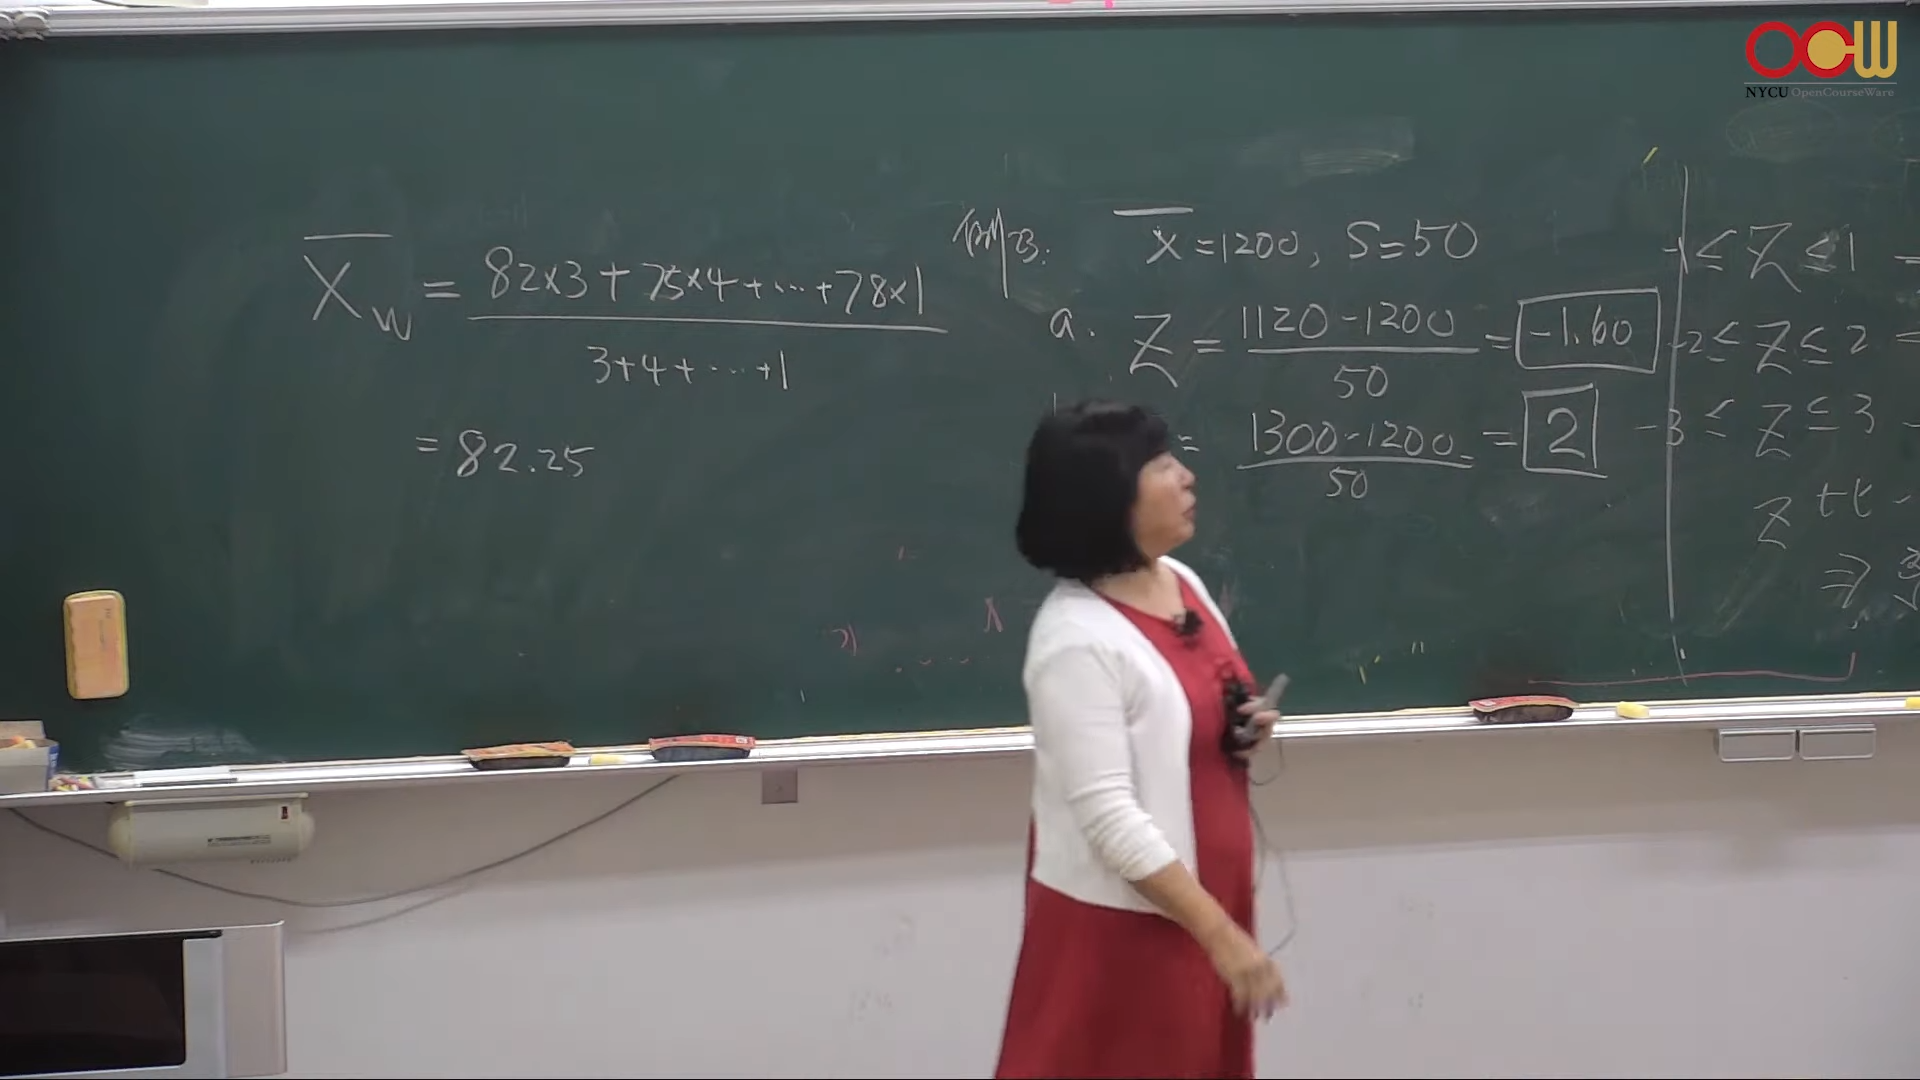 OCW
NYCU OpenCourseWare
X̄w = (82×3+75×4+⋯+78×1)/(3+4+⋯+1)
= 82.25
X̄ = 1200, S = 50
a. Z = (1120-1200)/50 = -1.60
= (1300-1200)/50 = 2
-1 ≤ Z ≤ 1
-2 ≤ Z ≤ 2 =
-3 ≤ Z ≤ 3 -
Z
⇒